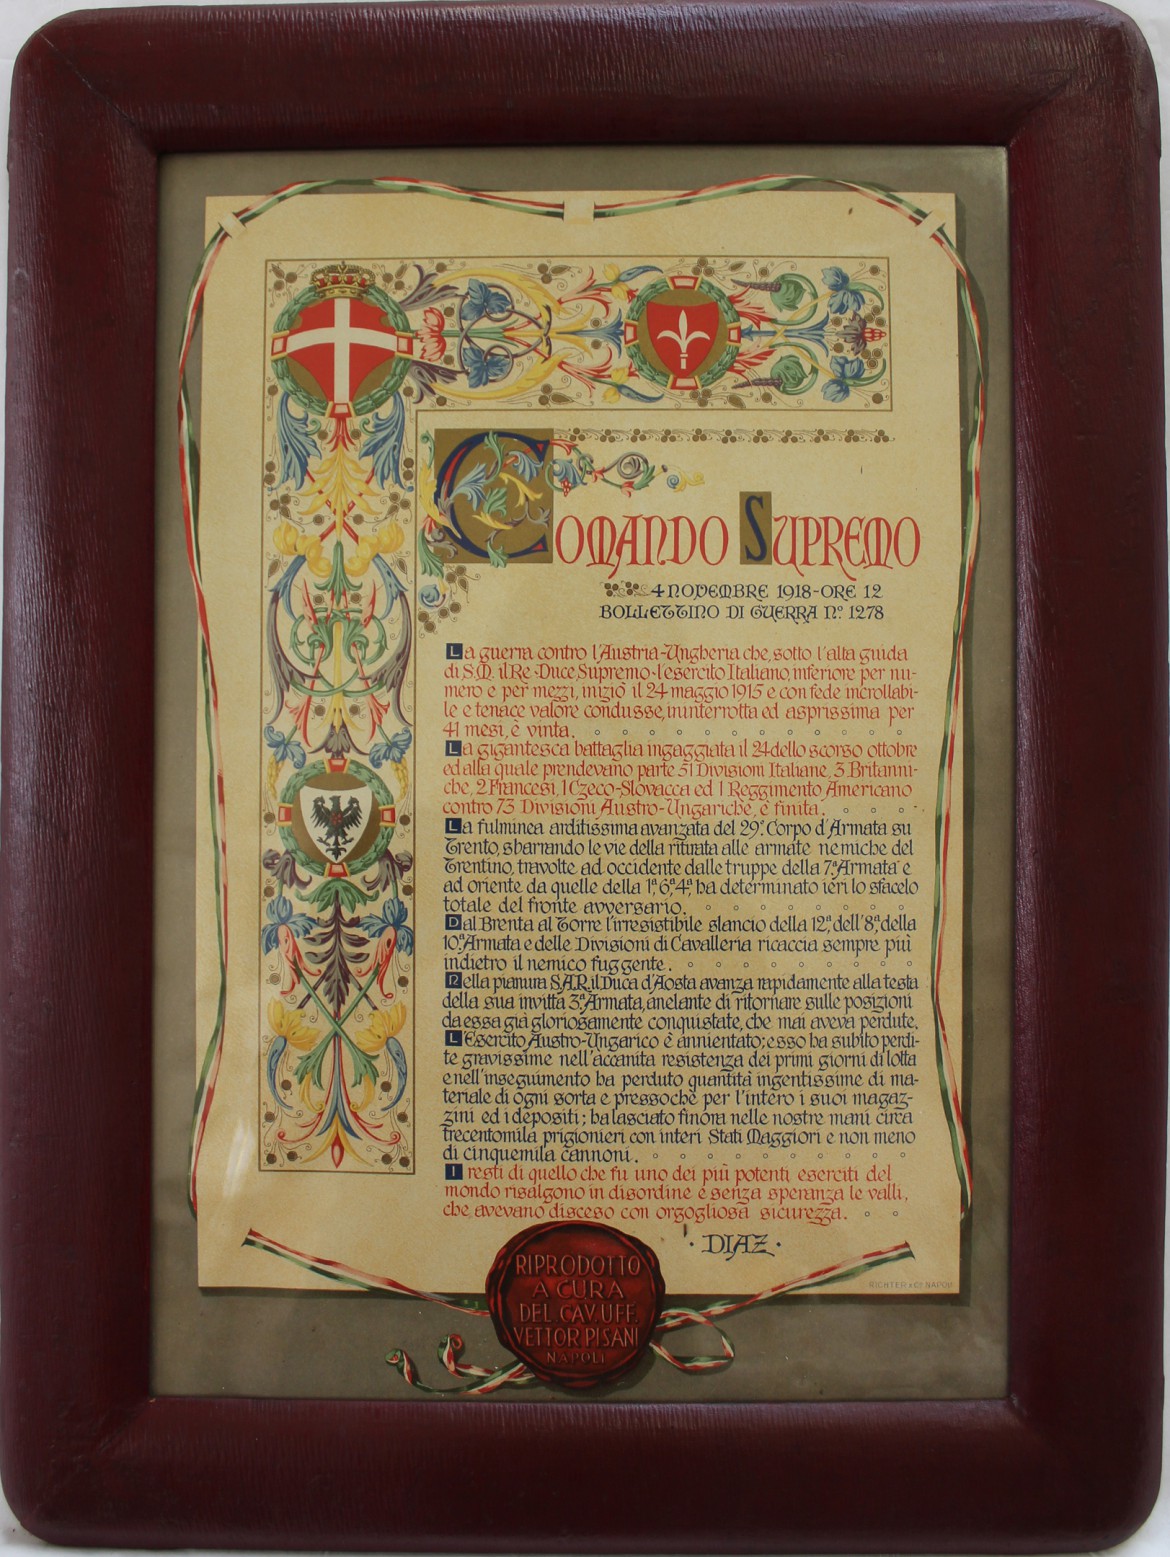 COMANDO SUPREMO
4 NOVEMBRE 1918-ORE 12
BOLLETTINO DI GUERRA N.º 1278
La guerra contro l'Austria-Ungheria che, sotto l'alta guida
di S.M. il Re-Duce Supremo-l'esercito Italiano, inferiore per nu-
mero e per mezzi, iniziò il 24 maggio 1915 e con fede incrollabi-
le e tenace valore condusse, ininterrotta ed asprissima per
41 mesi, è vinta.
La gigantesca battaglia ingaggiata il 24 dello scorso ottobre
ed alla quale prendevano parte 51 Divisioni Italiane, 3 Britanni-
che, 2 Francesi, 1 Czeco-Slovacca ed 1 Reggimento Americano
contro 73 Divisioni Austro-Ungariche, è finita.
La fulminea arditissima avanzata del 29º Corpo d'Armata su
Trento, sbarrando le vie della ritirata alle armate nemiche del
Trentino, travolte ad occidente dalle truppe della 7ª Armata e
ad oriente da quelle della 1ª, 6ª, 4ª, ha determinato ieri lo sfacelo
totale del fronte avversario.
Dal Brenta al Torre l'irresistibile slancio della 12ª, dell'8ª, della
10ª Armata e delle Divisioni di Cavalleria ricaccia sempre più
indietro il nemico fuggente.
Nella pianura S.A.R. il Duca d'Aosta avanza rapidamente alla testa
della sua invitta 3ª Armata, anelante di ritornare sulle posizioni
da essa già gloriosamente conquistate, che mai aveva perdute.
L'Esercito Austro-Ungarico è annientato; esso ha subito perdi-
te gravissime nell'accanita resistenza dei primi giorni di lotta
e nell'inseguimento ha perduto quantità ingentissime di ma-
teriale di ogni sorta e pressochè per l'intero i suoi magaz-
zini ed i depositi; ha lasciato finora nelle nostre mani circa
trecentomila prigionieri con interi Stati Maggiori e non meno
di cinquemila cannoni.
I resti di quello che fu uno dei più potenti eserciti del
mondo risalgono in disordine e senza speranza le valli,
che avevano disceso con orgogliosa sicurezza.
·DIAZ·
RICHTER & Cº NAPOLI
RIPRODOTTO
A CURA
DEL CAV. UFF.
VETTOR PISANI
NAPOLI